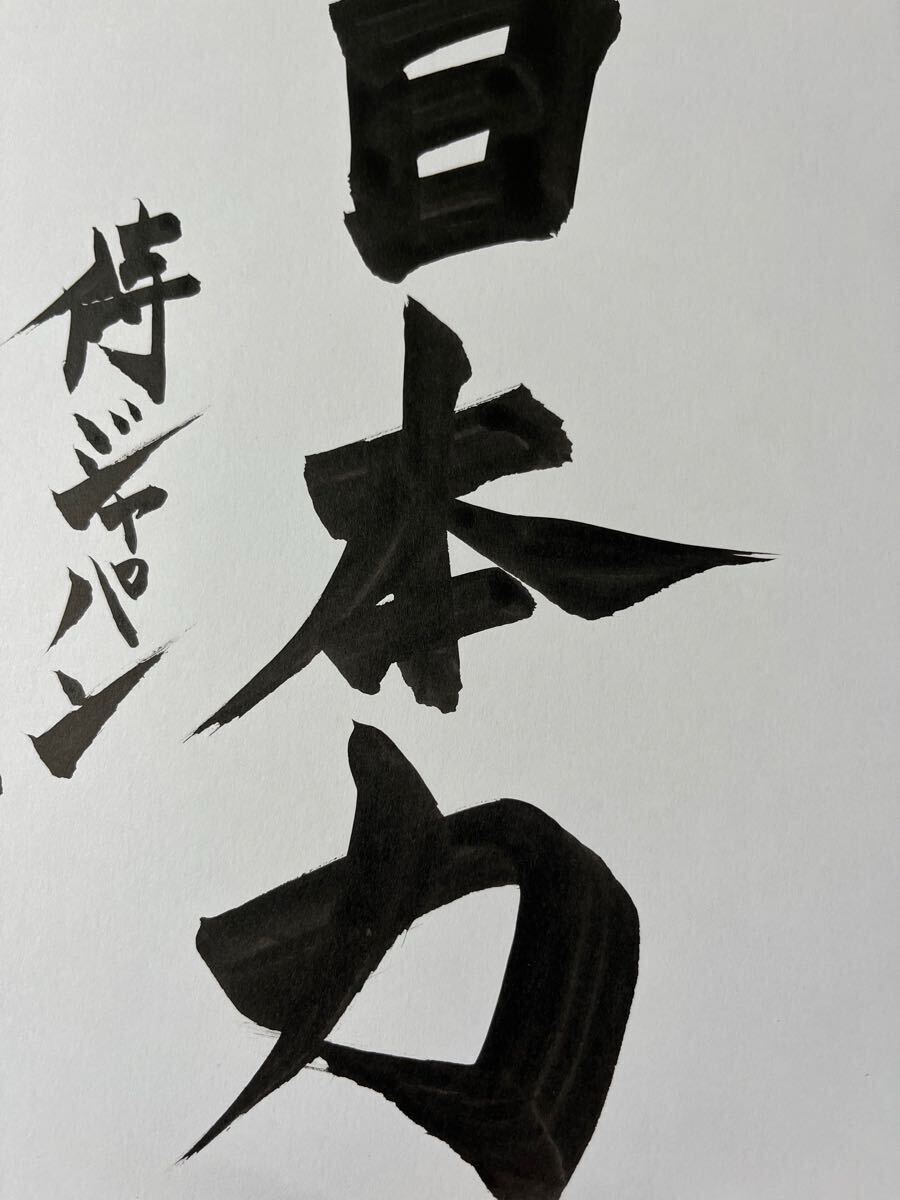 日本力
侍ジャパン